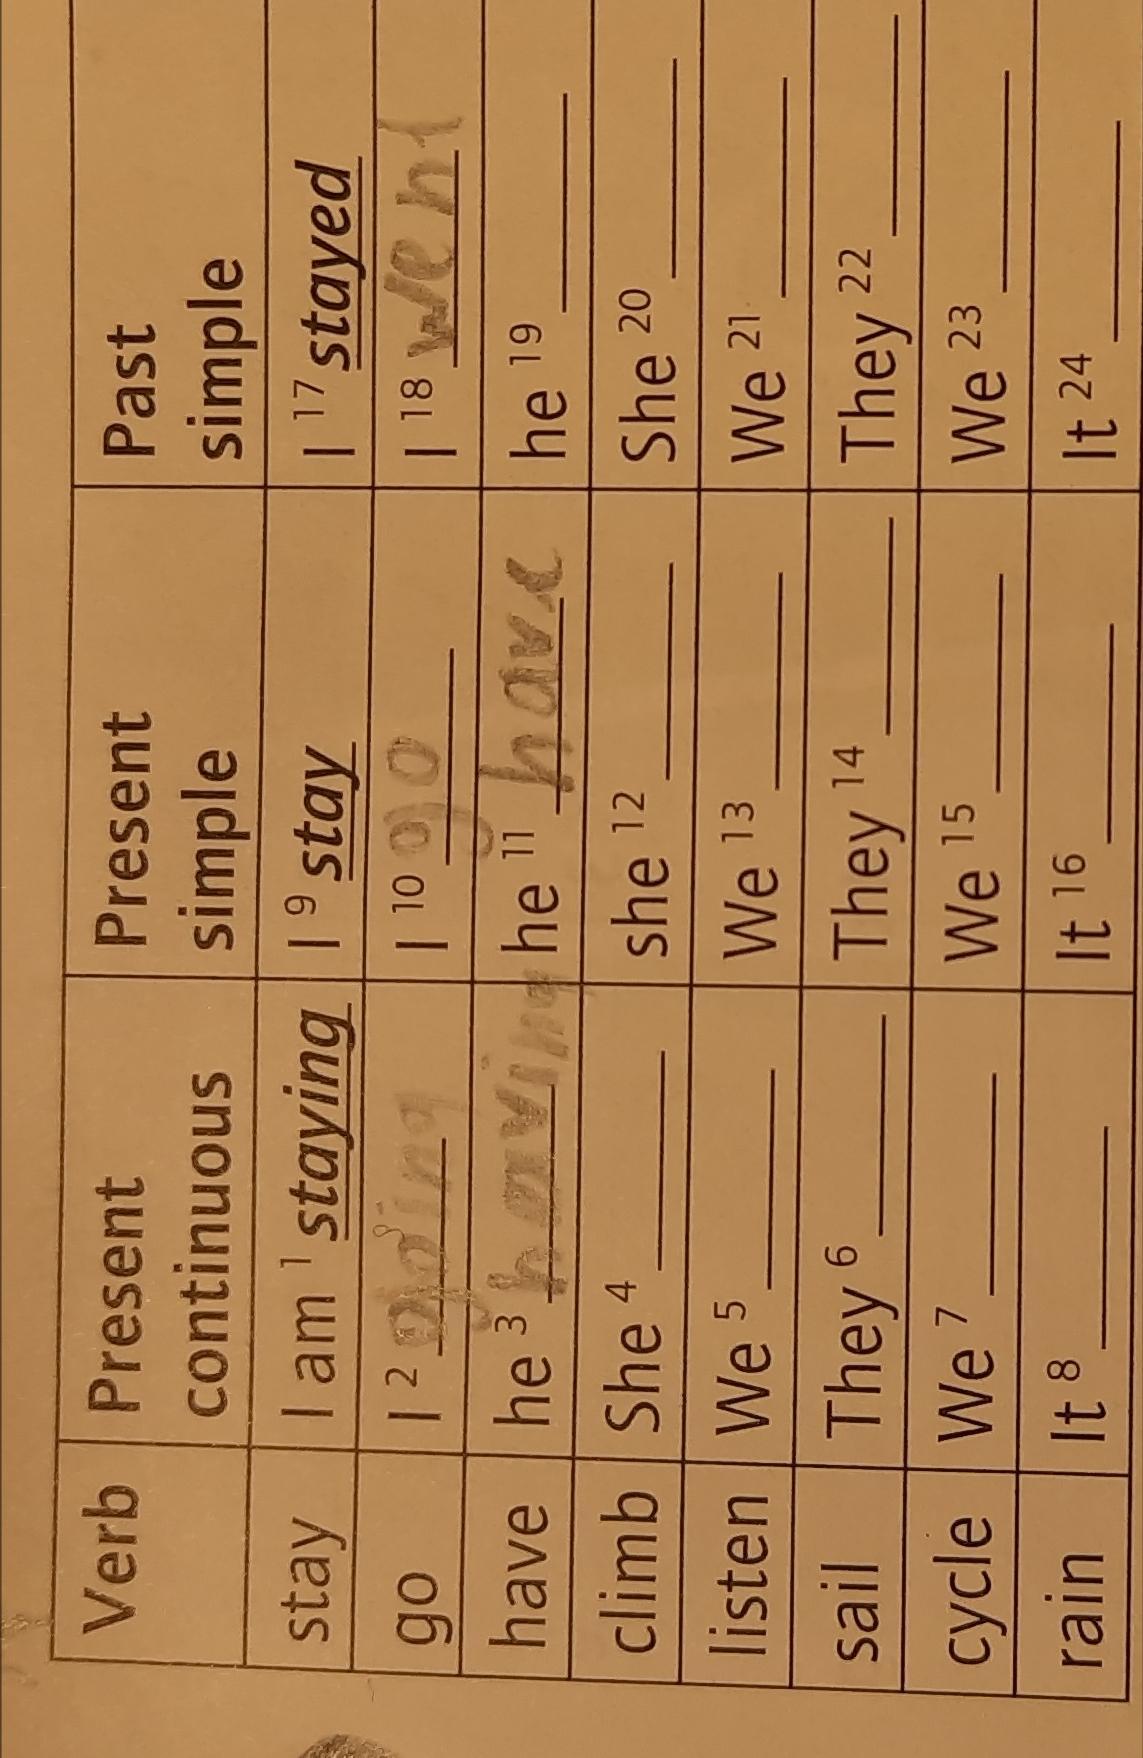 Verb Present continuous Present simple Past simple
stay I am ¹ staying I ⁹ stay I ¹⁷ stayed
go I ² going I ¹⁰ go I ¹⁸ went
have he ³ having he ¹¹ have he ¹⁹ ______
climb She ⁴ ______ she ¹² ______ She ²⁰ ______
listen We ⁵ ______ We ¹³ ______ We ²¹ ______
sail They ⁶ ______ They ¹⁴ ______ They ²² ______
cycle We ⁷ ______ We ¹⁵ ______ We ²³ ______
rain It ⁸ ______ It ¹⁶ ______ It ²⁴ ______